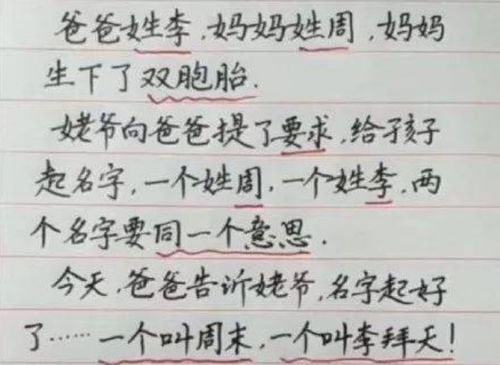 爸爸姓李,妈妈姓周,妈妈
生下了双胞胎.
姥爷向爸爸提了要求,给孩子
起名字,一个姓周,一个姓李,两
个名字要同一个意思.
今天,爸爸告诉姥爷,名字起好
了……一个叫周末,一个叫李拜天!